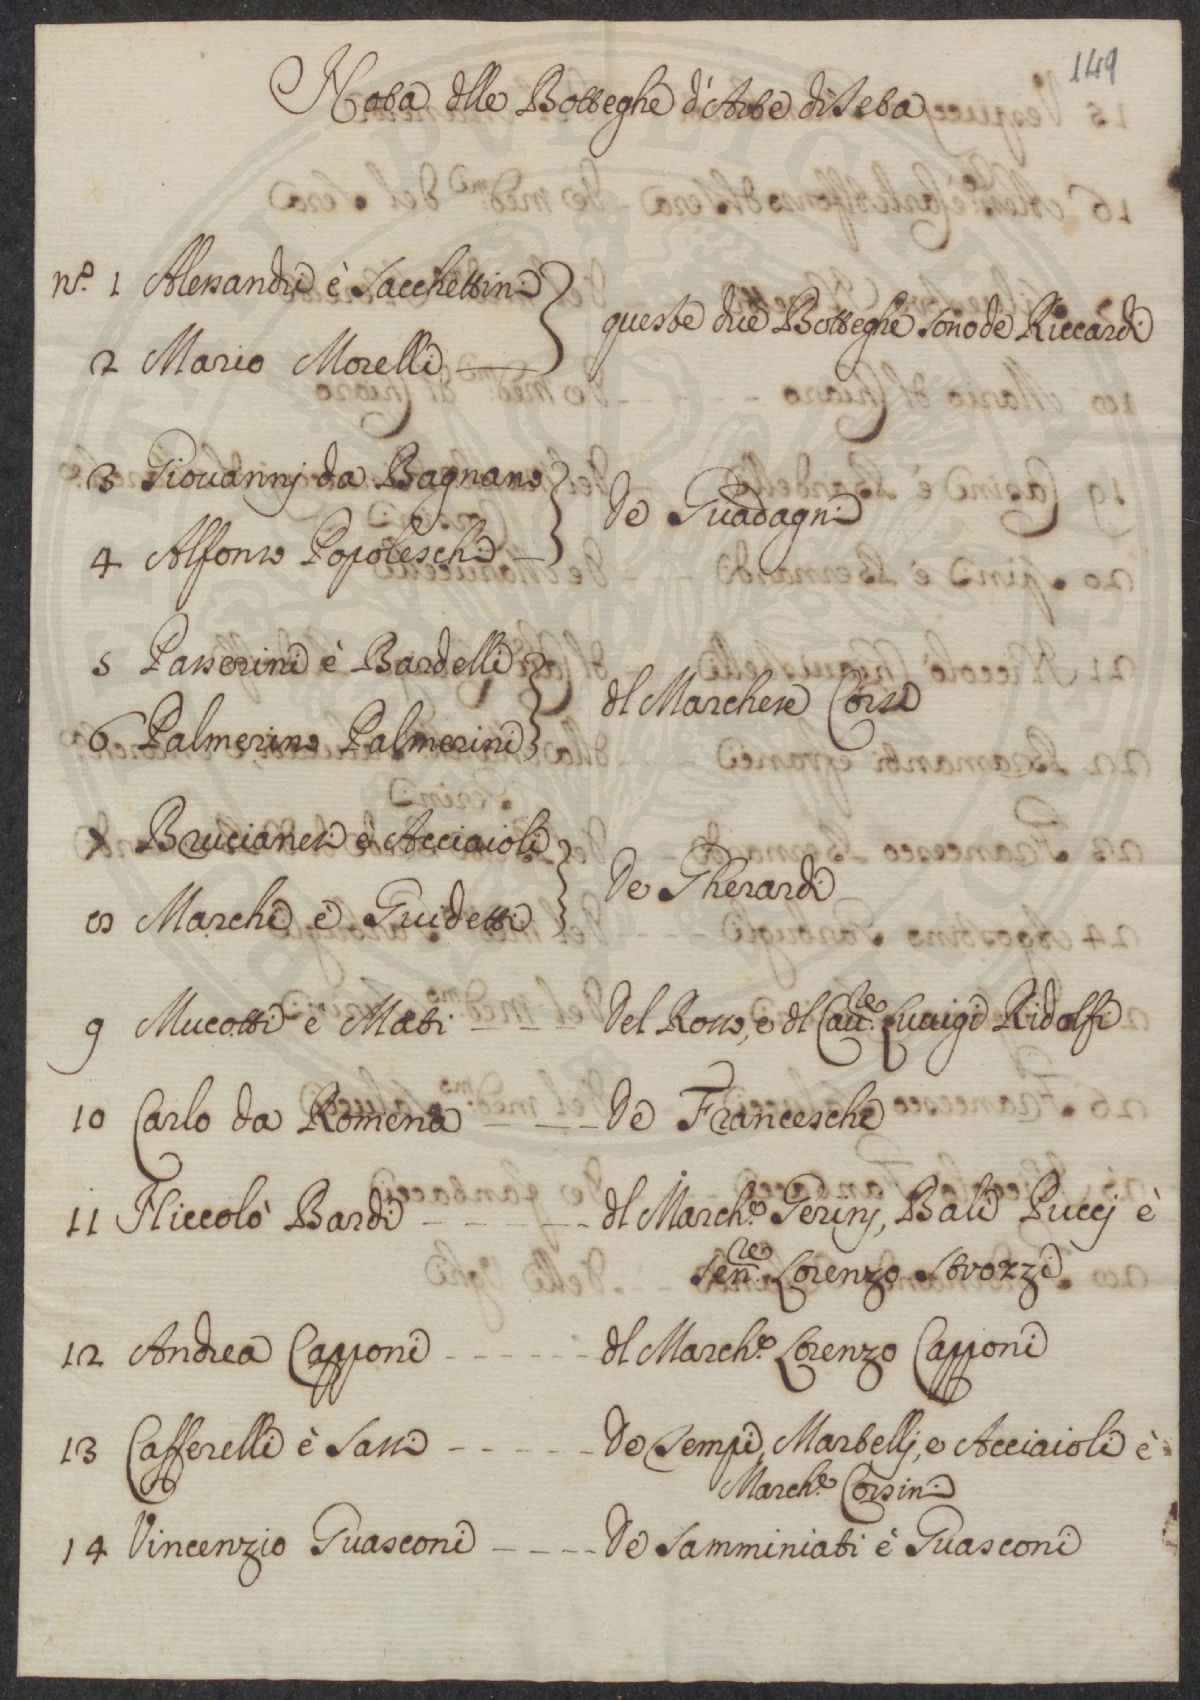 149
Nota dlle Botteghe d'Arte di Seta
nº. 1 Alessandri è Sacchettini
queste due Botteghe sono de Riccardi
2 Mario Morelli
3 Giouannj da Bagnano
de Guadagni
4 Alfonso Popoleschi
5 Passerini è Bardelli
dl Marchese Corsi
6 Palmerino Palmerini
7 Brucianesi è Acciaioli
de Gherardi
8 Marchi è Guidetti
9 Mucotti è Mati - - - Del Rosso, e dl Cau.re Luuigi Ridolfi
10 Carlo da Romena - - - De Franceschi
11 Niccolò Bardi - - - - dl March.e Gerinj, Balì Puccj è
Sen.re Lorenzo Strozzi
12 Andrea Capponi - - - - - - dl March.e Lorenzo Capponi
13 Cafferelli è Sassi - - - - - De Tempi, Martellj, e Acciaioli è
March.e Corsini
14 Vincenzio Guasconi - - - - De Samminiati è Guasconi